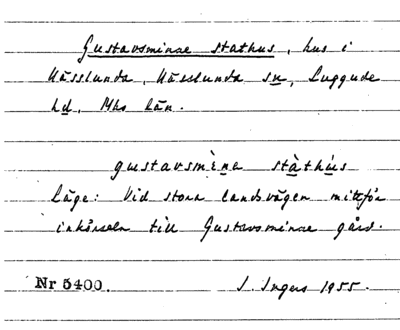 Gustavsminne stathus, hus i
Kässlunda, Kässlunda sn, Luggude
hd, Mhs län.
gustavsmène stàthus
Läge: Vid stora landsvägen mittför
inkörseln till Gustavsminne gård.
Nr 5400. I. Ingers 1955.